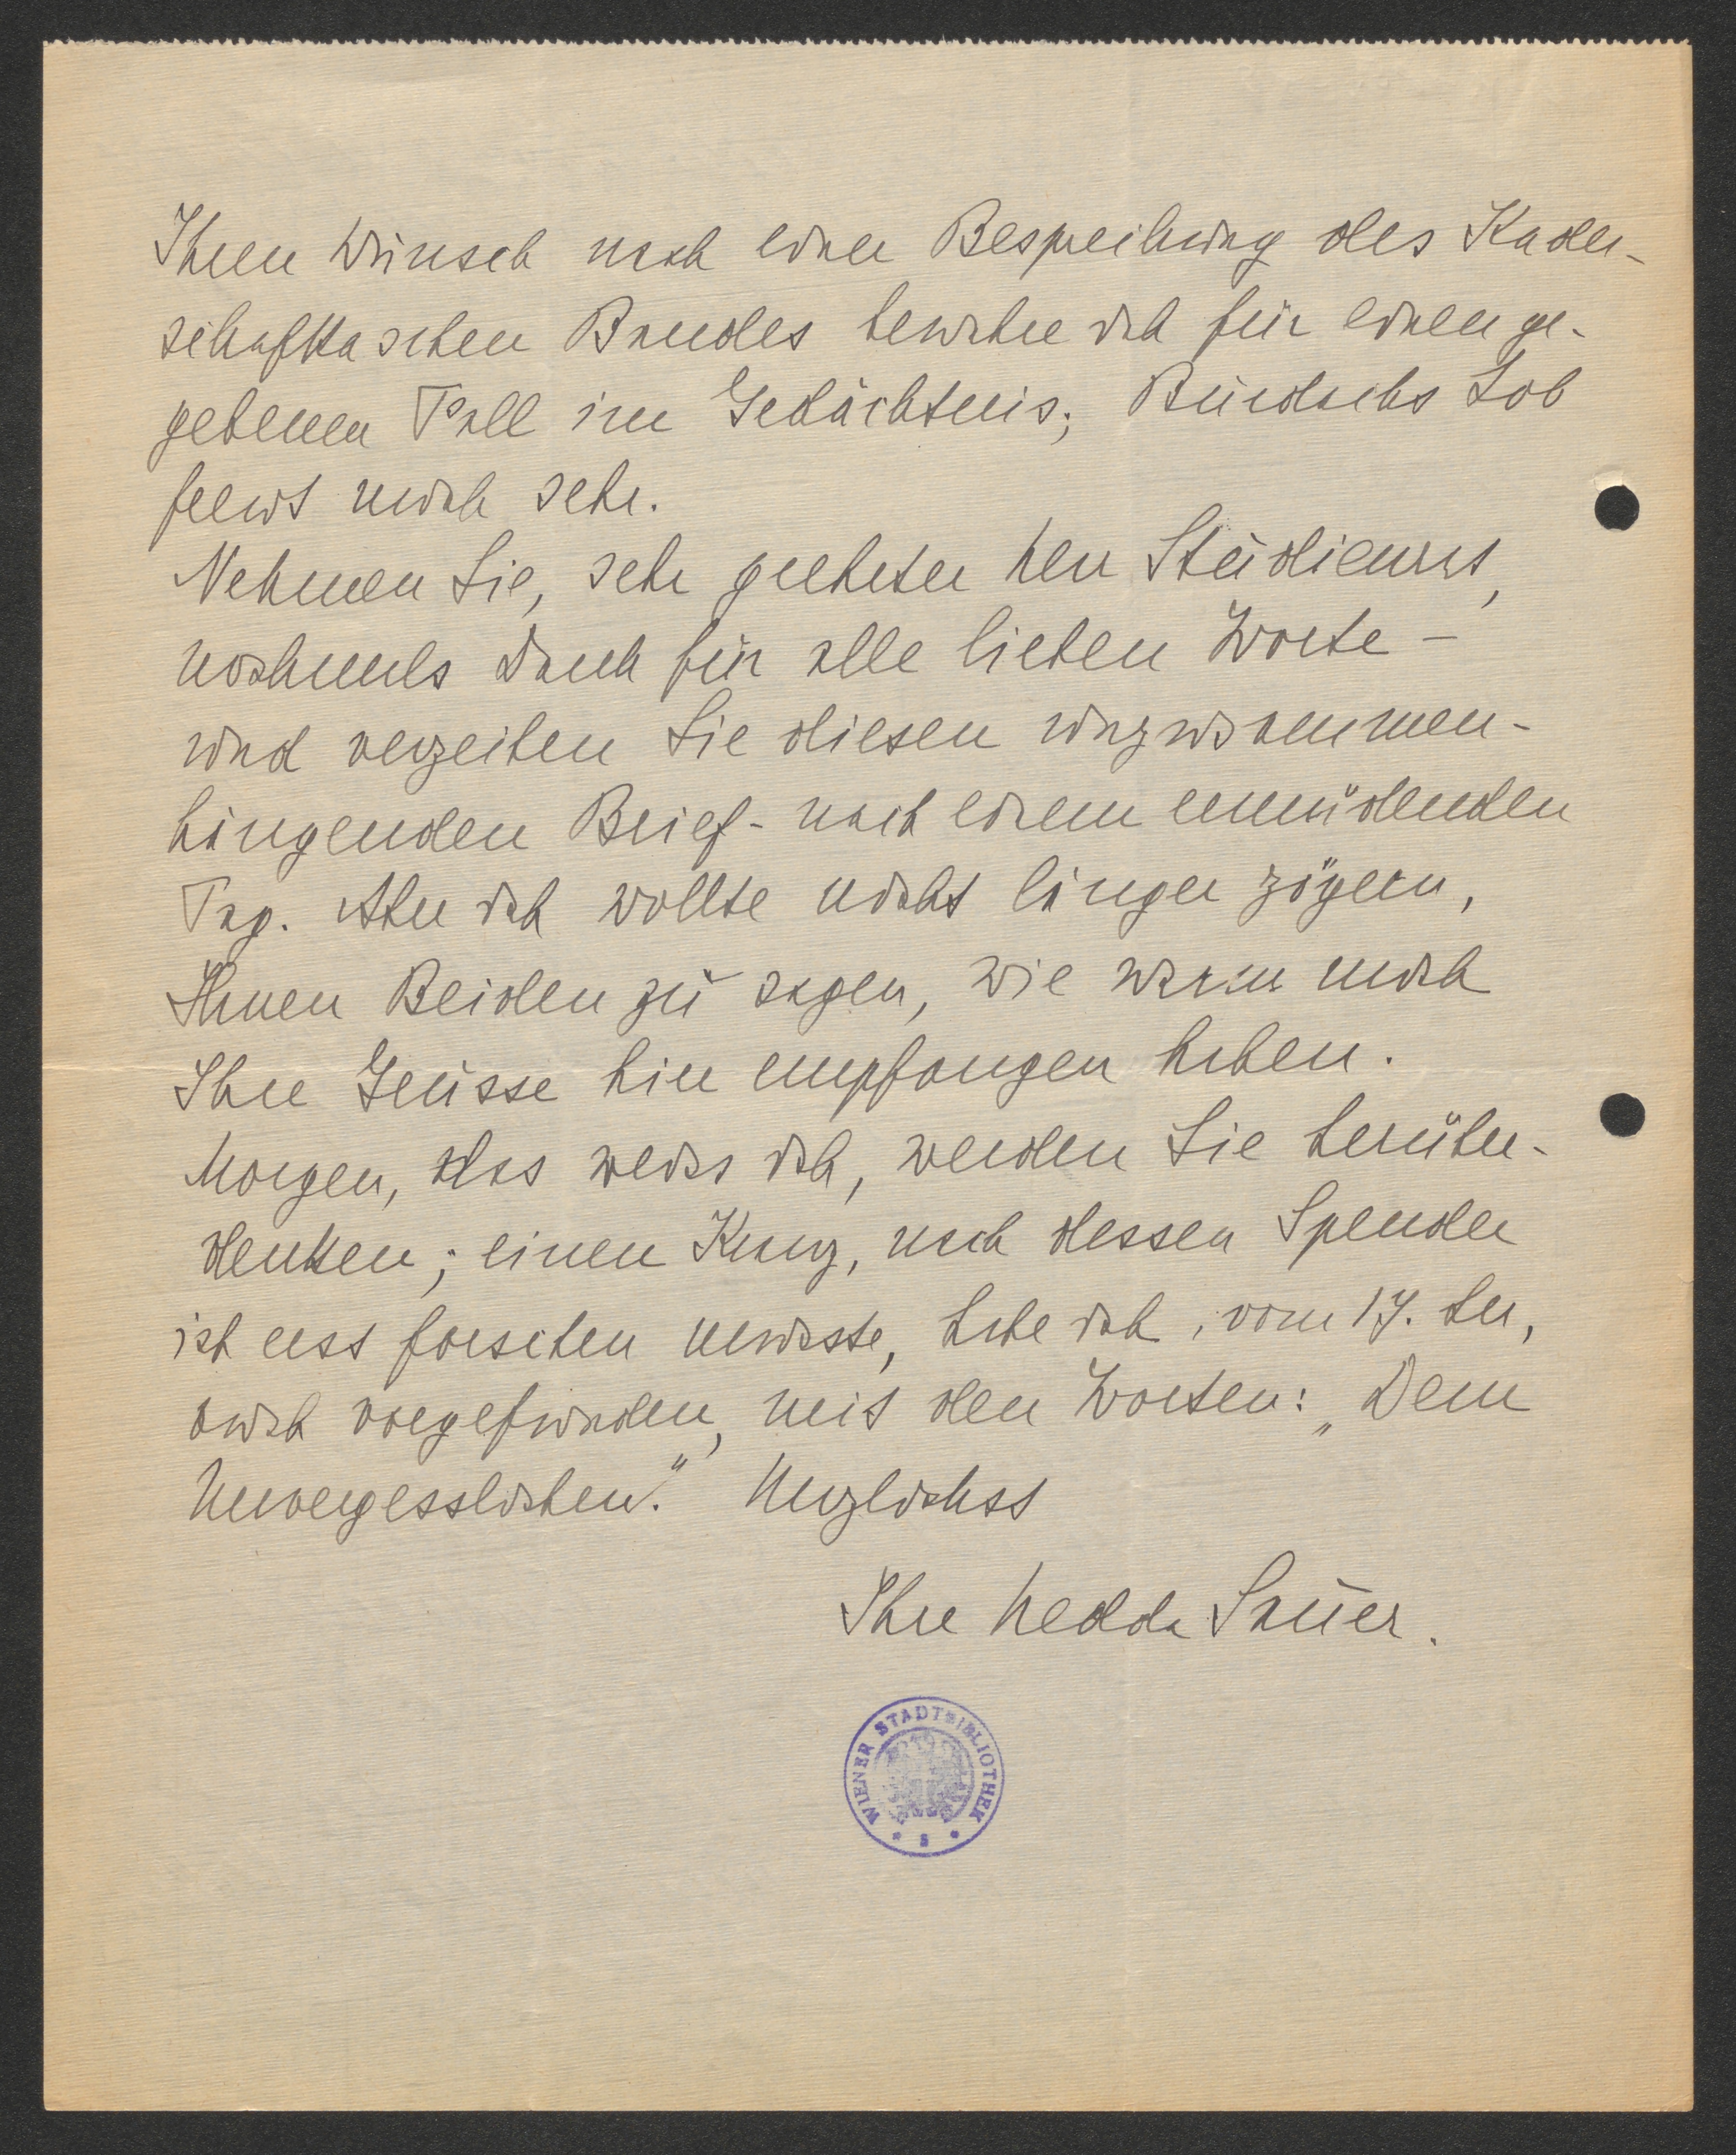 Ihren Wunsch nach einer Besprechung des Kader-
schafkaschen Bandes bewahre ich für einen ge-
gebenen Fall im Gedächtnis; Burdachs Lob
freut mich sehr.
Nehmen Sie, sehr geehrter Herr Studienrat,
nochmals Dank für alle lieben Worte –
und verzeihen Sie diesen unzusammen-
hängenden Brief - nach einem ermüdenden
Tag. Aber ich wollte nicht länger zögern,
Ihnen Beiden zu sagen, wie warm mich
Ihre Grüsse hier empfangen haben.
Morgen, das weiss ich, werden Sie herüber-
denken; einen Kranz, nach dessen Spender
ich erst forschen musste, habe ich, vom 17. her,
auch vorgefunden, mit den Worten: „Dem
Unvergesslichen." Herzlichst
Ihre Hedda Sauer.
WIENER STADTBIBLIOTHEK
* S *